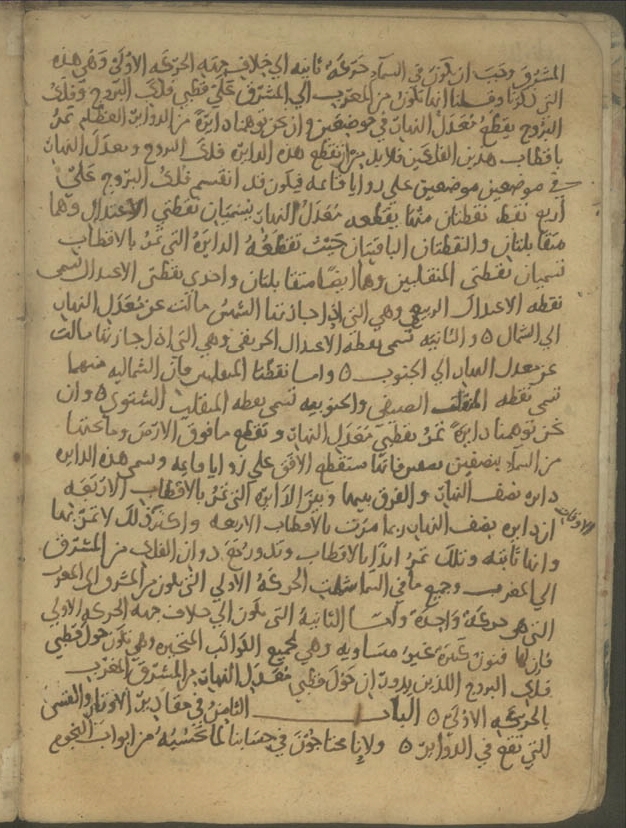 المشرق وجب ان يكون في السماء حركة ثانيه الي خلاف جهه الحركه الاولي وهي هذه
التي ذكرنا وقلنا انها تكون من المغرب الي المشرق علي قطبي فلك البروج وفلك
البروج يقطع معدل النهار في موضعين وان نحن توهمنا دايرة من الدواير العظام تمر
باقطاب هذين الفلكين فلا بد من ان تقطع هذه الدايره فلك البروج ومعدل النهار
في موضعين موضعين علي زوايا قائمه فيكون قد انقسم فلك البروج علي
اربع نقط نقطتان منها يقطعه معدل النهار يسميان نقطتي الاعتدال وهما
متقابلتان والنقطتان الباقيتان حيث تقطعه الدايرة التي تمر بالاقطاب
تسميان نقطتي المنقلبين وهما ايضا متقابلتان واحدي نقطتي الاعتدال تسمي
نقطه الاعتدال الربيعي وهي التي اذا جازتها الشمس مالت عن معدل النهار
الي الشمال ٥ والثانيه تسمي نقطه الاعتدال الخريفي وهي التي اذا جازتها مالت
عن معدل النهار الي الجنوب ٥ واما نقطتا المنقلبين فان الشماليه منهما
تسمي نقطه المنقلب الصيفي والجنوبيه تسمي نقطه المنقلب الشتوي ٥ وان
نحن توهمنا دايرة تمر بقطبي معدل النهار وتقطع ما فوق الارض وما تحتها
من السماء بنصفين نصفين فانها ستقطع الافق علي زوايا قايمه وتسمي هذه الدايره
دايره نصف النهار والفرق بينها وبين الدايره التي تمر بالاقطاب الاربعه
ان دايره نصف النهار ربما مرت بالاقطاب الاربعه واكثر ذلك لا تمر بها
الاوقات
وانها ثابته وتلك تمر ابدا بالاقطاب وتدور مع دوران الفلك من المشرق
الي المغرب وجميع ما في السما شملت الحركه الاولي التي تكون من المشرق الي المغرب
التي هي حركة واحدة واما الثانية التي تكون الي خلاف جهه الحركه الاولي
فان لها فنون كثيرة غير متساويه وهي لجميع الكواكب المتحيره وهي تكون حول قطبي
فلك البروج اللذين يدوران حول قطبي معدل النهار من المشرق الي المغرب
بالحركه الاولي ٥ الباب الثامن في مقادير الاوتار والقسي
التي تقع في الدواير ٥ ولانا محتاجون في حسابنا لما نحسبه من ابواب النجوم